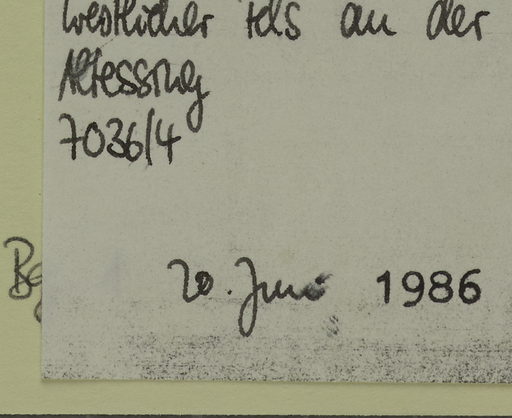 westlicher Fels an der
Altessing
7036/4
20. Juni 1986